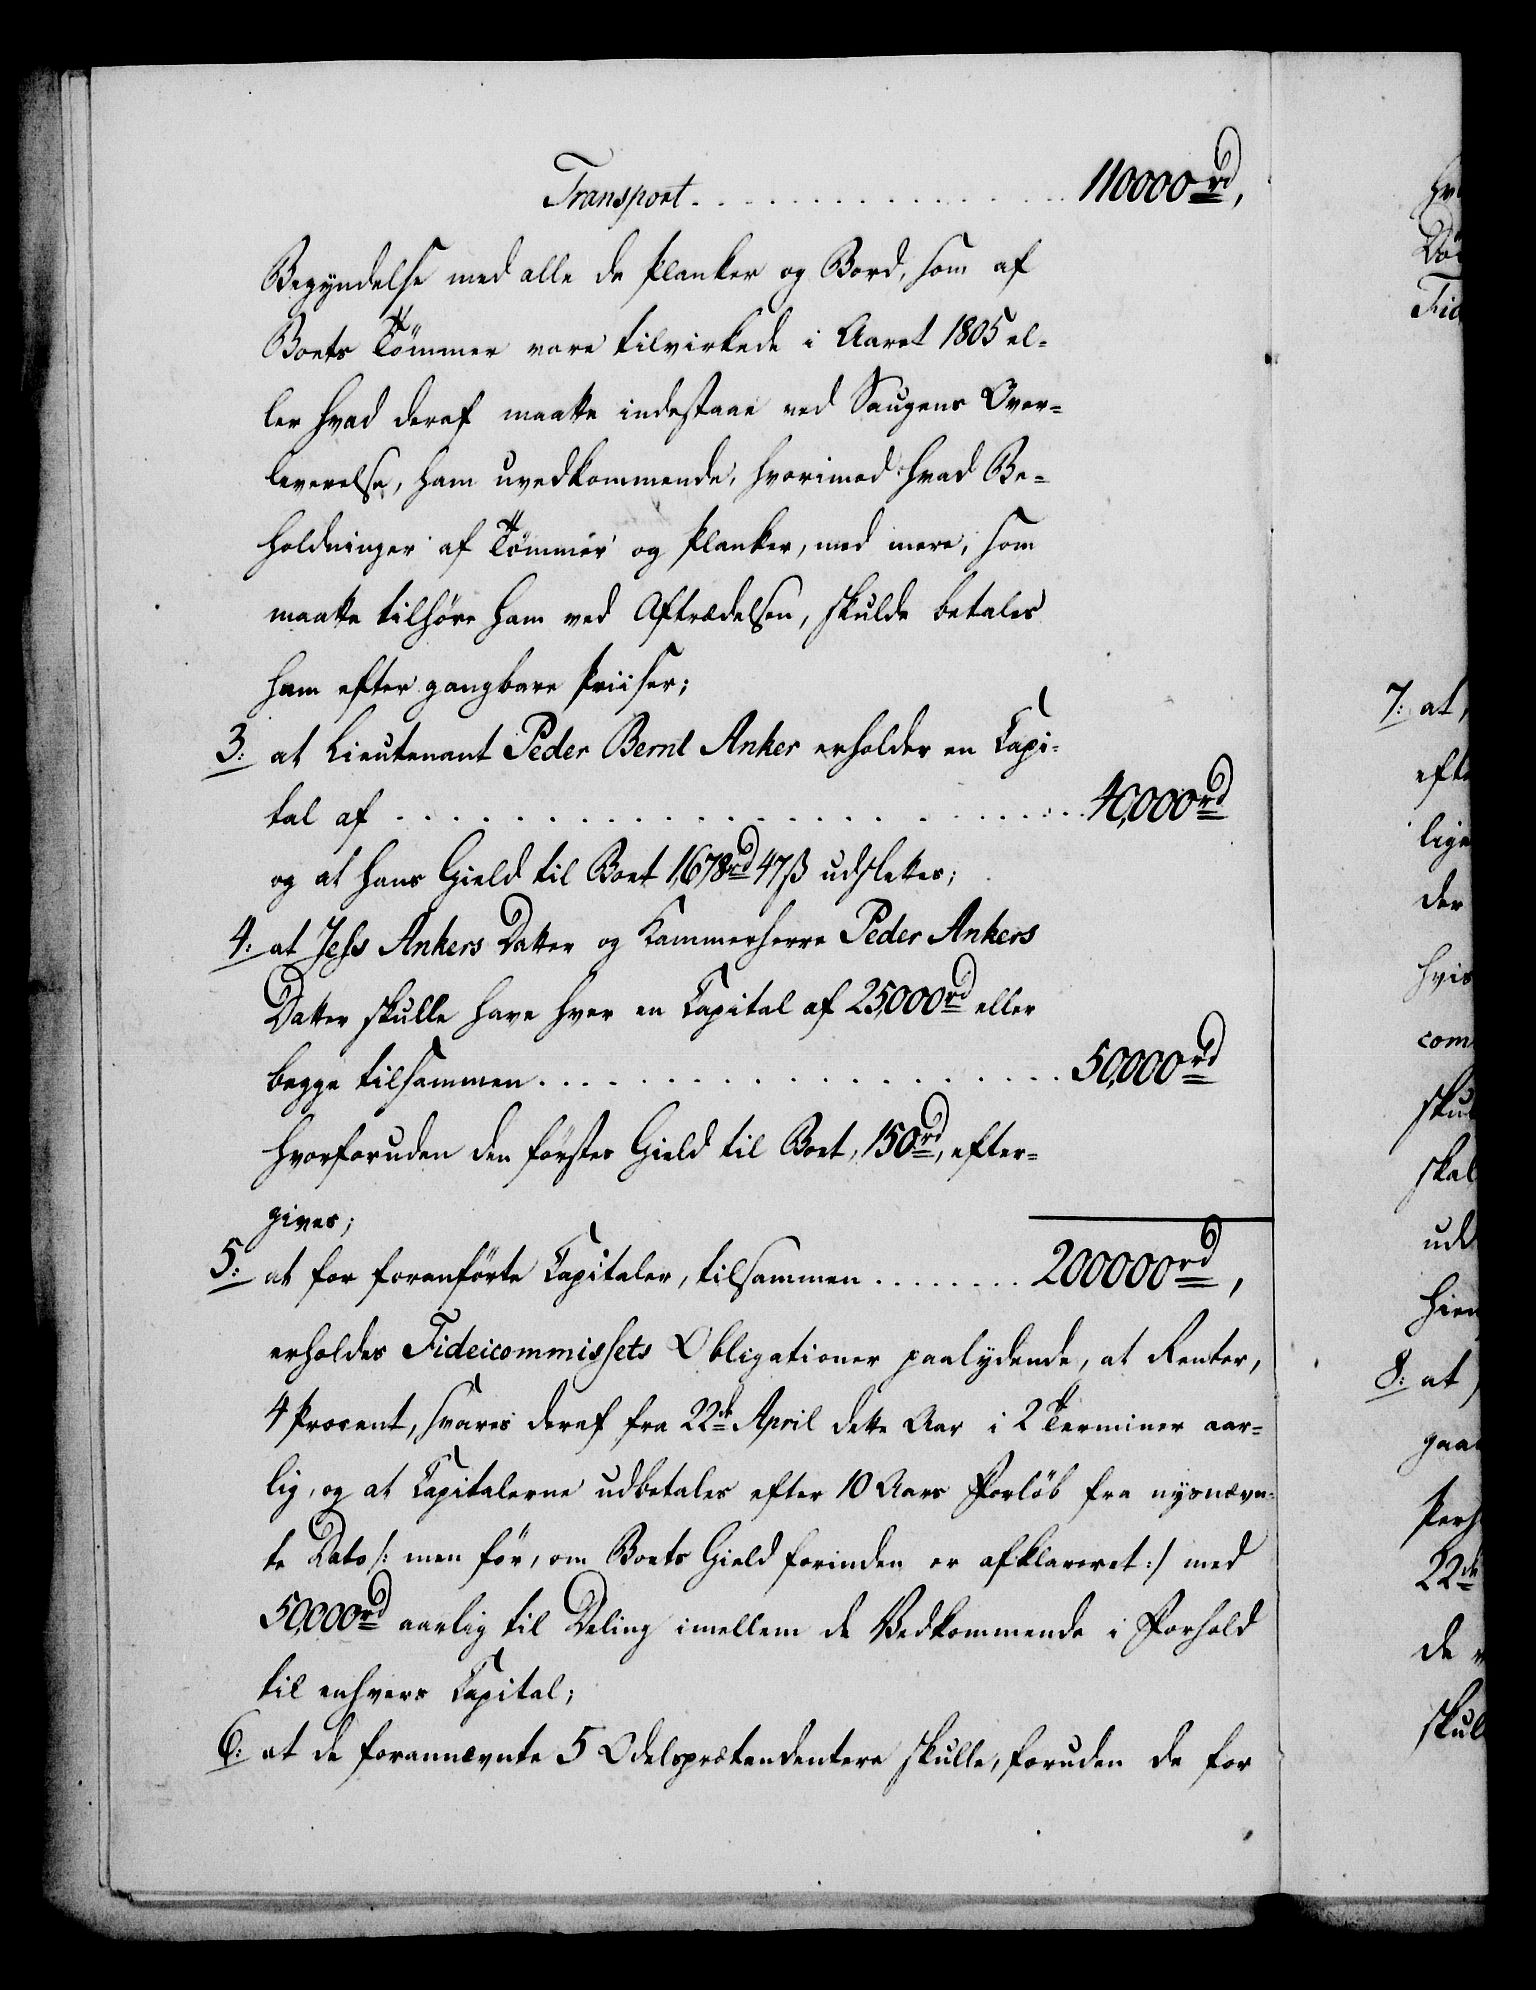 Transport . . . . . . . . . . . . . . 110000rd,
Begyndelse med alle de Planker og Bord, som af
Boets Tömmer vare tilvirkede i Aaret 1805 el-
ler hvad deraf maatte indestaae ved Saugens Over-
leverelse, ham uvedkommende, hvorimod hvad Be-
holdninger af Tömmer og Planker, med mere, som
maatte tilhöre ham ved Aftrædelsen, skulde betales
ham efter gangbare Priiser;
3: at Lieutenant Peder Bernt Anker erholder en Capi-
tal af . . . . . . . . . . . . . . . . . . . . 40,000rd
og at hans Gield til Boet 1,678rd 47ß udslettes;
4: at Jess Ankers Datter og Kammerherre Peder Ankers
Datter skulle have hver en Capital af 25,000rd eller
begge tilsammen . . . . . . . . . . . . . . . . . 50,000rd
hvorforuden den förstes Gield til Boet, 150rd, efter-
gives;
5: at for foranförte Capitaler, tilsammen . . . . . . . . 200000rd,
erholdes Fideicommissets Obligationer paalydende, at Renter,
4 Procent, svares deraf fra 22de April dette Aar i 2 Terminer aar-
lig, og at Capitalerne udbetales efter 10 Aars Forlöb fra nysnævn-
te Dato /: men för, om Boets Gield forinden er afklareret :/ med
50,000rd aarlig til Deling imellem de Vedkommende i Forhold
til enhvers Capital;
6: at de forannævnte 5 Odelsprætendentere skulle, foruden de for
7: at
efte
lige
der
hvis
com
skul
skal
hien
8: at
gaae
22de
de
skul